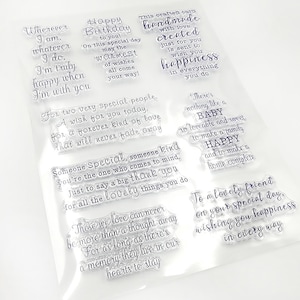 Wherever
I am,
whatever
I do,
I'm truly
happy when
I'm with you
Happy
Birthday
to you!
On this special day
may the
warmest
of wishes
all come
your way!
This crafted card
handmade
with love
created
just for you
is sent to
wish you
happiness
in everything
you do
For two very special people
I wish for you today
A forever kind of love
That will never fade away
There's
nothing like a
BABY
HAPPY
Someone special, someone kind
You're the one who comes to mind,
Just to say a big thank you
for all the lovely things you do
Those we love can never
be more than a thought away
For as long as there's
a memory they live in our
hearts to stay
To a lovely friend
on your special day
wishing you happiness
in every way